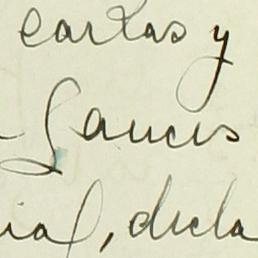 cartas y
Saucis
ial, decla